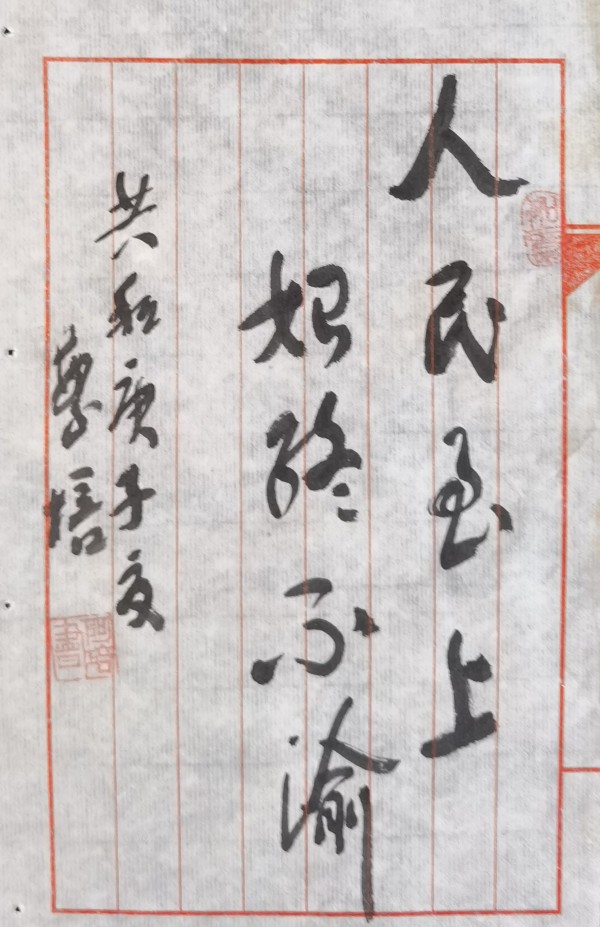 人民至上
始终不渝
共和庚子夏
培